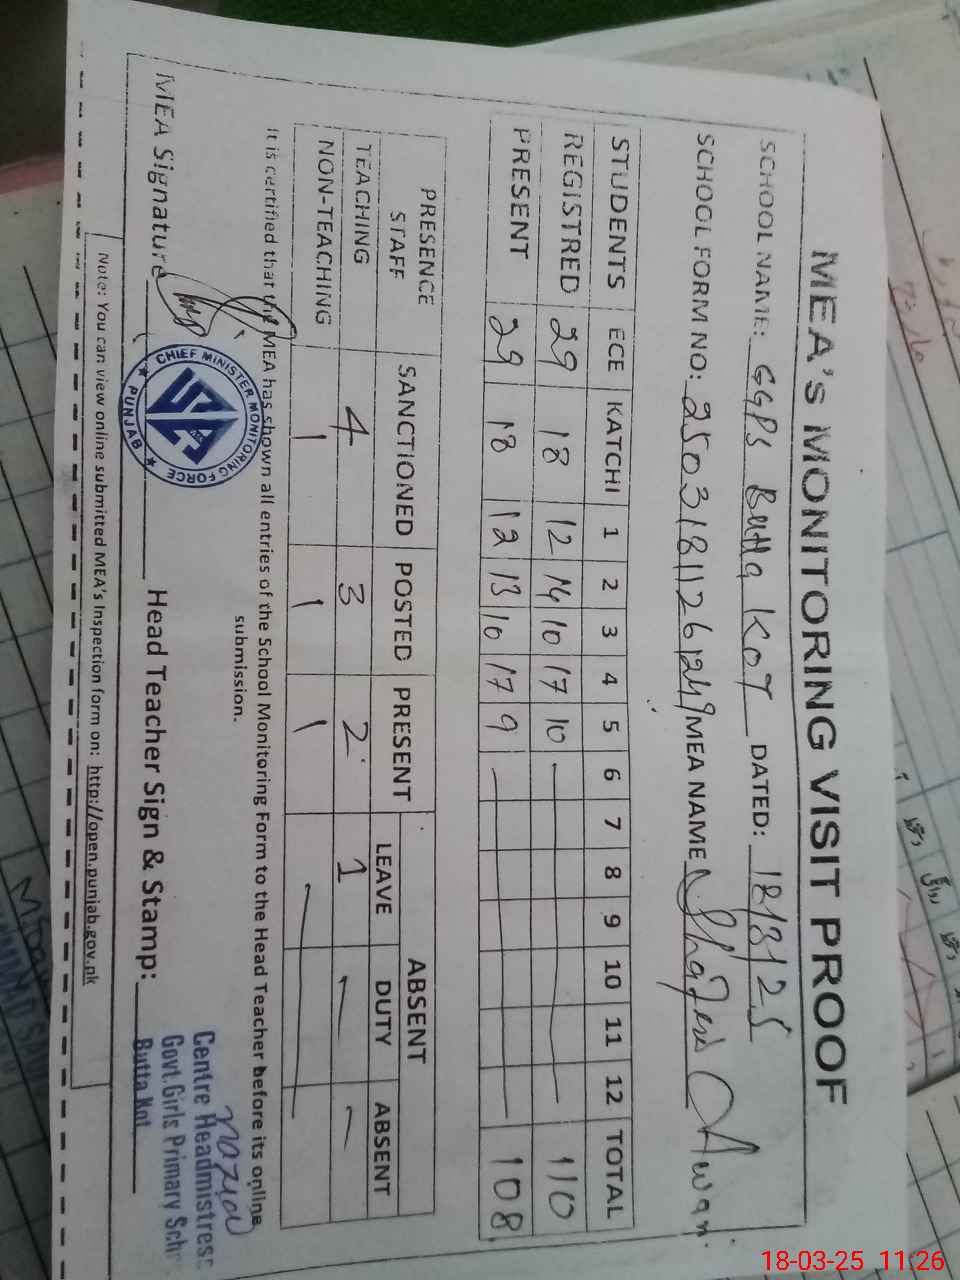 MEA's MONITORING VISIT PROOF
SCHOOL NAME: GGPS Butta KOT DATED: 18/3/25
SCHOOL FORM NO: MEA NAME Awan
STUDENTS ECE KATCHI 1 2 3 4 5 6 7 8 9 10 11 12 TOTAL
REGISTRED 29 18 12 14 10 17 10 — 110
PRESENT 29 18 12 13 10 17 9 — 108
PRESENCE STAFF SANCTIONED POSTED PRESENT ABSENT
LEAVE DUTY ABSENT
TEACHING 4 3 2 1 — —
NON-TEACHING 1 1 1 —
It is certified that the MEA has shown all entries of the School Monitoring Form to the Head Teacher before its online
submission.
MEA Signature Head Teacher Sign & Stamp:
CHIEF MINISTER MONITORING FORCE
PUNJAB
Centre Headmistress
Govt.Girls Primary Sch
Butta Kot
Note: You can view online submitted MEA's Inspection form on: http://open.punjab.gov.pk
18-03-25 11:26